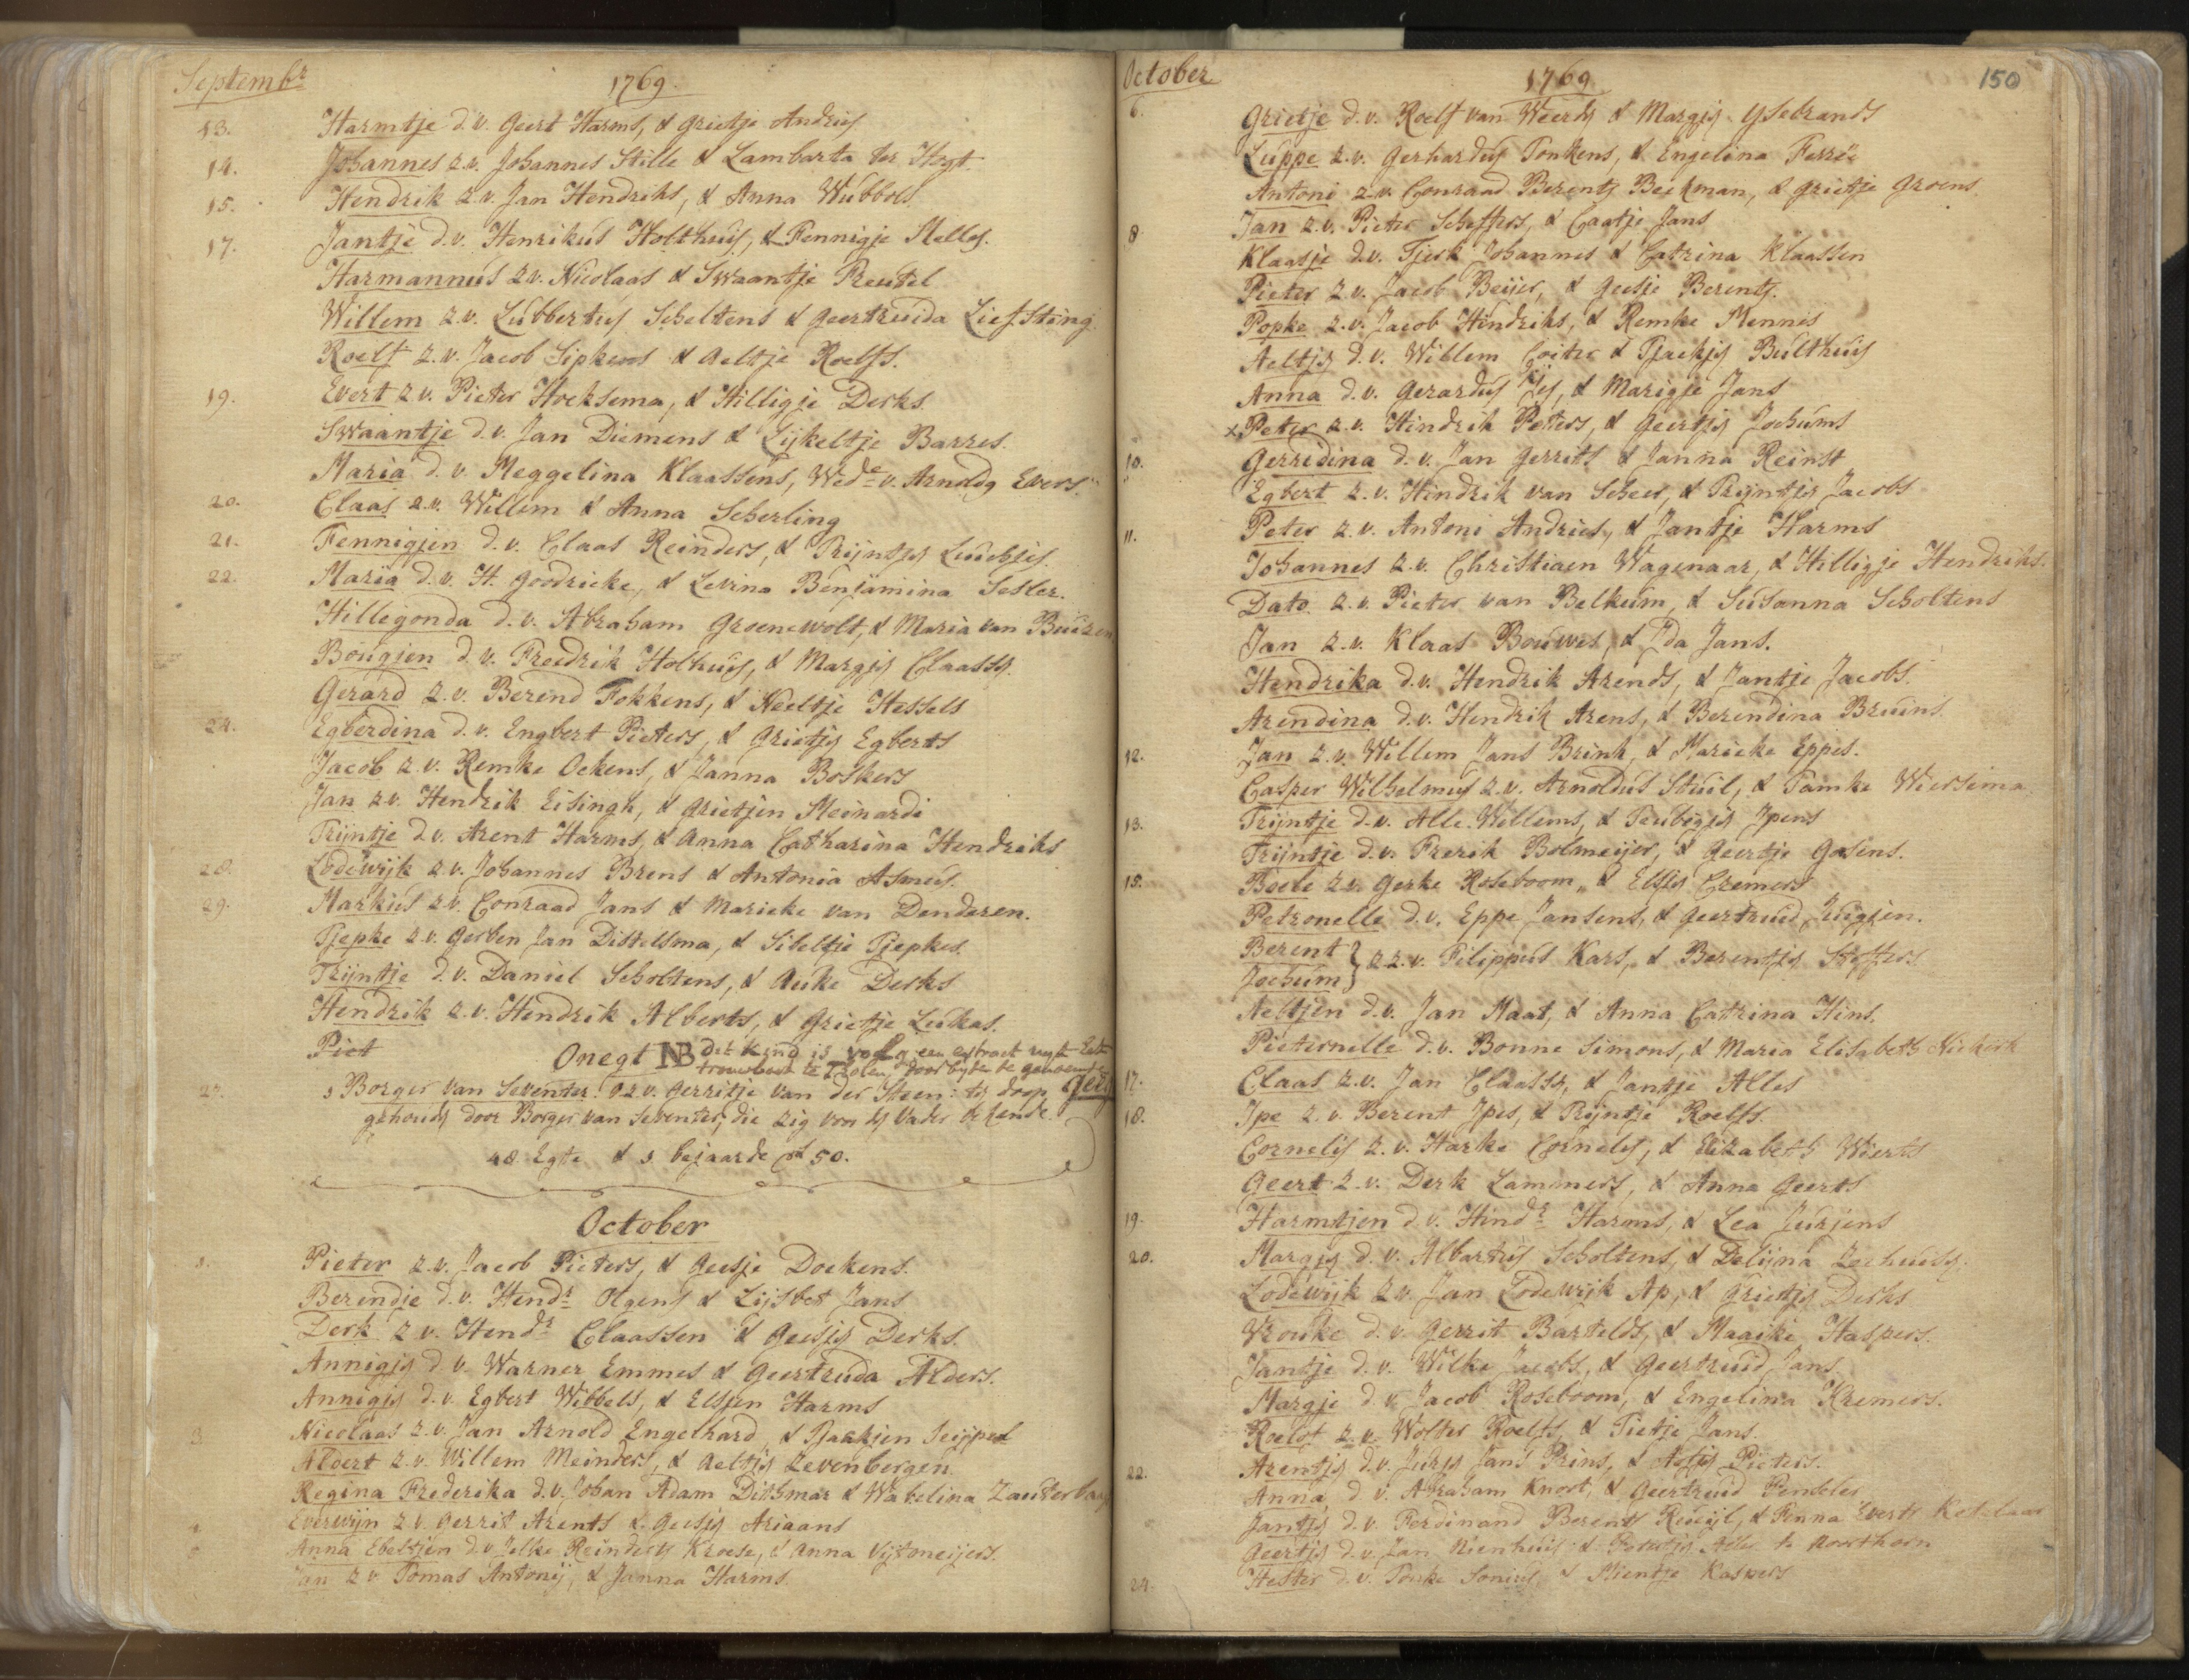 Septembr 1769.
13. Harmtje d.v. Geert Harms, & Grietje Andries
14. Johannes z.v. Johannes Stille & Lambarta ter Hogt.
15. Hendrik z.v. Jan Hendriks, & Anna Wubbols
17. Jantje d.v. Henrikus Holthuis, & Fennigje Melles.
Harmannus z.v. Nicolaas & Swaantje Preutel
Willem z.v. Lubbertus Scheltens & Geertruida Liefsting
Roelf z.v. Jacob Sipkens & Aeltje Roelfs.
19. Evert z.v. Pieter Hoeksema, & Hilligje Derks.
Swaantje d.v. Jan Diemens & Lijkeltje Barres.
Maria d.v. Meggelina Klaassens, Wede v. Arnoldq Evers.
20. Claas z.v. Willem & Anna Scherling
21. Fennigjen d.v. Claas Reinders, & Trijntje
22. Maria d.v. H. Goodricke, & Levina Benjamina Sesler.
Hillegonda d.v. Abraham Groenewolt, & Maria van Buiren
Bougjen d.v. Freedrik Holhuis, & Margjs Claassq.
Gerard z.v. Berend Fokkens, & Neeltje Hessels
24. Egberdina d.v. Engbert Pieters, & Grietjs Egberts
Jacob z.v. Remke Ockens, & Janna Boskers
Jan z.v. Hendrik Eisingh, & Grietjen Meinardi
Trijntje d.v. Arent Harms, & Anna Catharina Hendriks
28. Lodewijk z.v. Johannes Brens & Antonia Asmus.
29. Markus z.v. Conraad Jans & Marieke van Denderen.
Tjepke z.v. Gerben Jan Distelsma, & Sibeltje Tjepkes.
Trijntje d.v. Daniel Scholtens, & Auke Derks
Hendrik z.v. Hendrik Alberts, & Grietje Lukas.
Piet Onegt NB dit kind is volg een extract uyt het
trouwboek te door byden te genoemt
27. Borger van Seventer: o.z.v. Gerritje van der Steen: ts doop
gehouds door Borger van Seventer, die zig voor ds vader bekende.
48 Egte & 1 bejaarde 50.
October
1. Pieter z.v. Jacob Pieters, & Geesje Doekens.
Berendje d.v. Hendr Otgens & Lijsbet Jans
Derk z.v. Hendr Claassen & Geesjs Derks.
Annigjs d.v. Warner Emmes & Geertruda Alders.
Annigjs d.v. Egbert Wibbels, & Elsjen Harms
3 Nicolaas z.v. Jan Arnold Engelhard, & Tjaakjen Seippel
Aldert z.v. Willem Meinders, & Aeltjs Zevenbergen
Regina Frederika d.v. Johan Adam Dithmar & Wabelina
4 Everwijn z.v. Gerrit Arents & Geesjs Ariaans
5 Anna Ebeltjen d.v. Jelke Reinderts Kroese, & Anna Vijtmeijers.
Jan z.v. Tomas Antonij, & Janna Harms.
October 1769 150
6. Grietje d.v. Roelf van Weerds & Margjs Ysebrands
Luppe z.v. Gerhardus Tonkens, & Engelina Ferrée
Antoni z.v. Conraad Berents Beekman, & Grietje Groens.
8 Jan z.v. Pieter Scheffers, & Caatje Jans
Klaasje d.v. Tjerk Johannes & Catrina Klaassen
Pieter z.v. Jacob Beijer, & Geesje Berents.
Popke z.v. Jacob Hindriks, & Remke Mennis
Aeltjs d.v. Willem Coiter & Tjaekjs Bulthuis
Anna d.v. Gerardus & Marigje Jans
x Peter z.v. Hindrik Peters, & Geertjs Jochums
10. Gerridina d.v. Jan Gerrits & Janna Reinst
Egbert z.v. Hindrik van Scheer, & Trijntjs Jacobs
11. Peter z.v. Antoni Andries, & Jantje Harms
Johannes z.v. Christiaen Wagenaar, & Hilligje Hendriks.
Dato z.v. Pieter van Belkum, & Susanna Scholtens
Jan z.v. Klaas Bouwes, & Ida Jans.
Hendrika d.v. Hendrik Arends, & Jantje Jacobs.
Arendina d.v. Hendrik Arens, & Berendina Bruins
12. Jan z.v. Willem Jans Brink, & Marieke Eppes.
Casper Wilhelmus z.v. Arnoldus Stuil, & Tamke Wiersema
13. Trijntje d.v. Alle Willems, & Teubigjs Ipens
Trijntje d.v. Frerik Bolmeijer, & Geertje Gosens.
15. Boele z.v. Gerke Roseboom, & Elsjs Cremers
Petronelle d.v. Eppe Jansens, & Geertruid Juigjen.
Berent } z.z.v. Filippus Kars, & Berentjs Steffers
Jochum }
Aeltjen d.v. Jan Maat, & Anna Catrina Hins.
Pieternelle d.v. Bonne Simons, & Maria Elisabeth Niekerk
17. Claas z.v. Jan Claassq, & Jantje Alles
18. Ipe z.v. Berent Ipes, & Trijntje Roelfs.
Cornelis z.v. Harke Cornelis, & Elizabeth Wierts
Geert z.v. Derk Lammers, & Anna Geerts
19. Harmtjen d.v. Hindr Harms, & Lea Jurjens
20. Margjs d.v. Albartus Scholtens, & Delijna
Lodewijk z.v. Jan Lodewijk Ap, & Grietjs Derks
Vrouke d.v. Gerrit Bartelds, & Maaike Haspers.
Jantje d.v. Wilke Jacobs, & Geertruid Jans
Margje d.v. Jacob Roseboom, & Engelina Kremers.
Roelof z.v. Wolter Roelfs, & Tietje Jans.
22. Arentjs d.v. Jurjs Jans Prins, & Aefjs Pieters.
Anna d.v. Abraham Knoot, & Geertruid
Jantjs d.v. Ferdinand Berents & Fenna Everts Ketelaar
Geertjs d.v. Jan Nienhuis & te Noorthorn
24. Hester d.v. Fonke & Mientje Kaspers